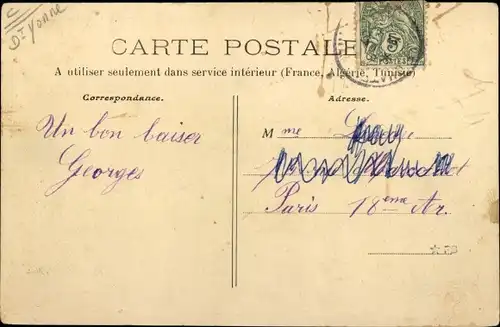 Dt Yonne
CARTE POSTALE
A utiliser seulement dans service intérieur (France, Algérie, Tunisie)
Correspondance.
Adresse.
5
POSTES
Un bon baiser
Georges
Mme
Paris 18eme Ar.